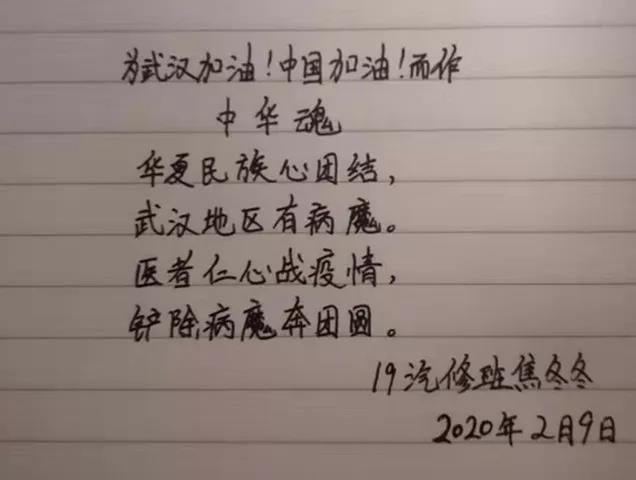 为武汉加油！中国加油！而作
中华魂
华夏民族心团结，
武汉地区有病魔。
医者仁心战疫情，
铲除病魔奔团圆。
19汽修班焦冬冬
2020年2月9日